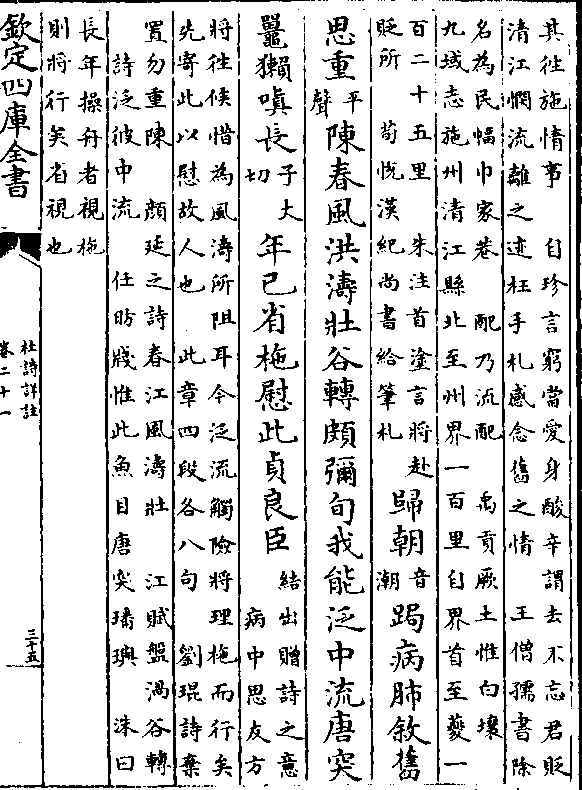 其往施情事　自珍言窮當愛身酸辛謂去不忘君貶
清江憫流離之迹枉手札感念舊之情　王僧孺書除
名為民幅巾家巷　配乃流配　禹貢厥土惟白壤
九域志施州清江縣北至州界一百里自界首至夔一
百二十五里　朱注首塗言將赴
貶所　荀悅漢紀尚書給筆札
歸朝音潮跼病肺敘舊
思重平聲陳春風洪濤壯谷轉頗彌旬我能泛中流唐突
鼉獺嗔長子丈切年已省柂慰此貞良臣
結出贈詩之意
病中思友方
將往候惜為風濤所阻耳今泛流觸險將理柂而行矣
先寄此以慰故人也　此章四段各八句　劉琨詩棄
置勿重陳　顏延之詩春江風濤壯　江賦盤渦谷轉
詩泛彼中流　任昉牋惟此魚目唐突璠璵　洙曰
長年操舟者視柂
則將行矣省視也
欽定四庫全書
杜詩詳註
卷二十一
三十五